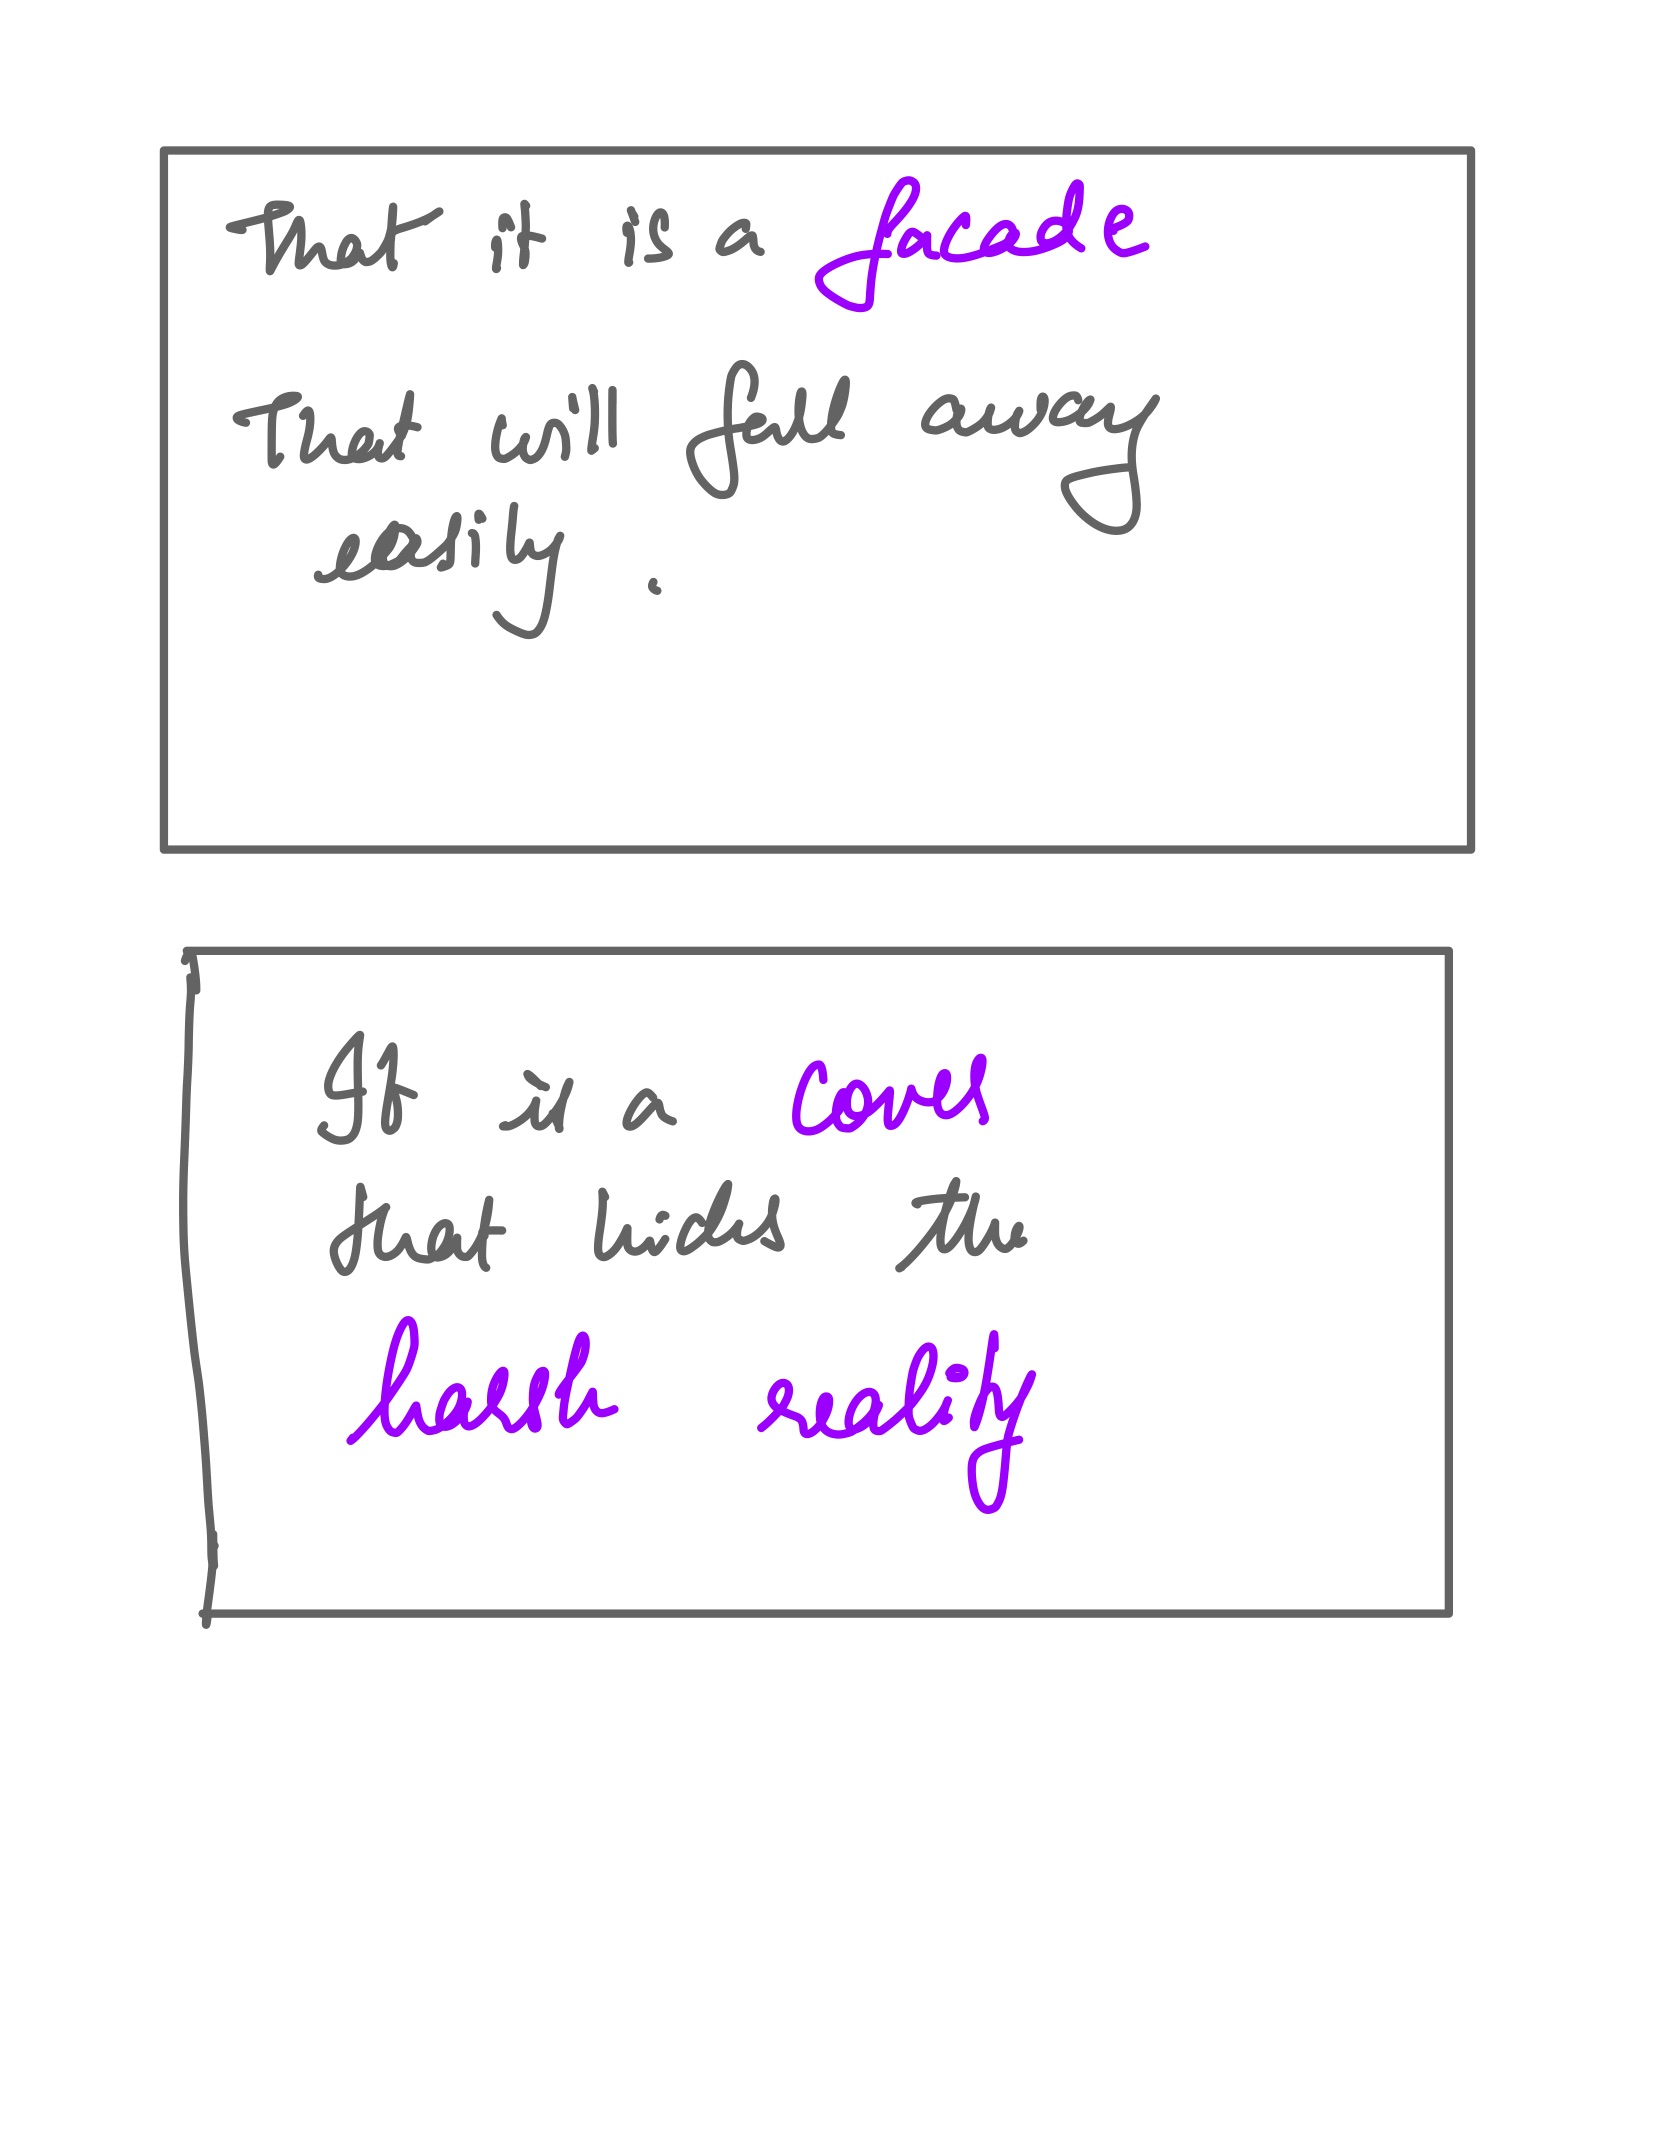 That it is a facade
That will fall away
easily.
It is a cover
that hides the
harsh reality